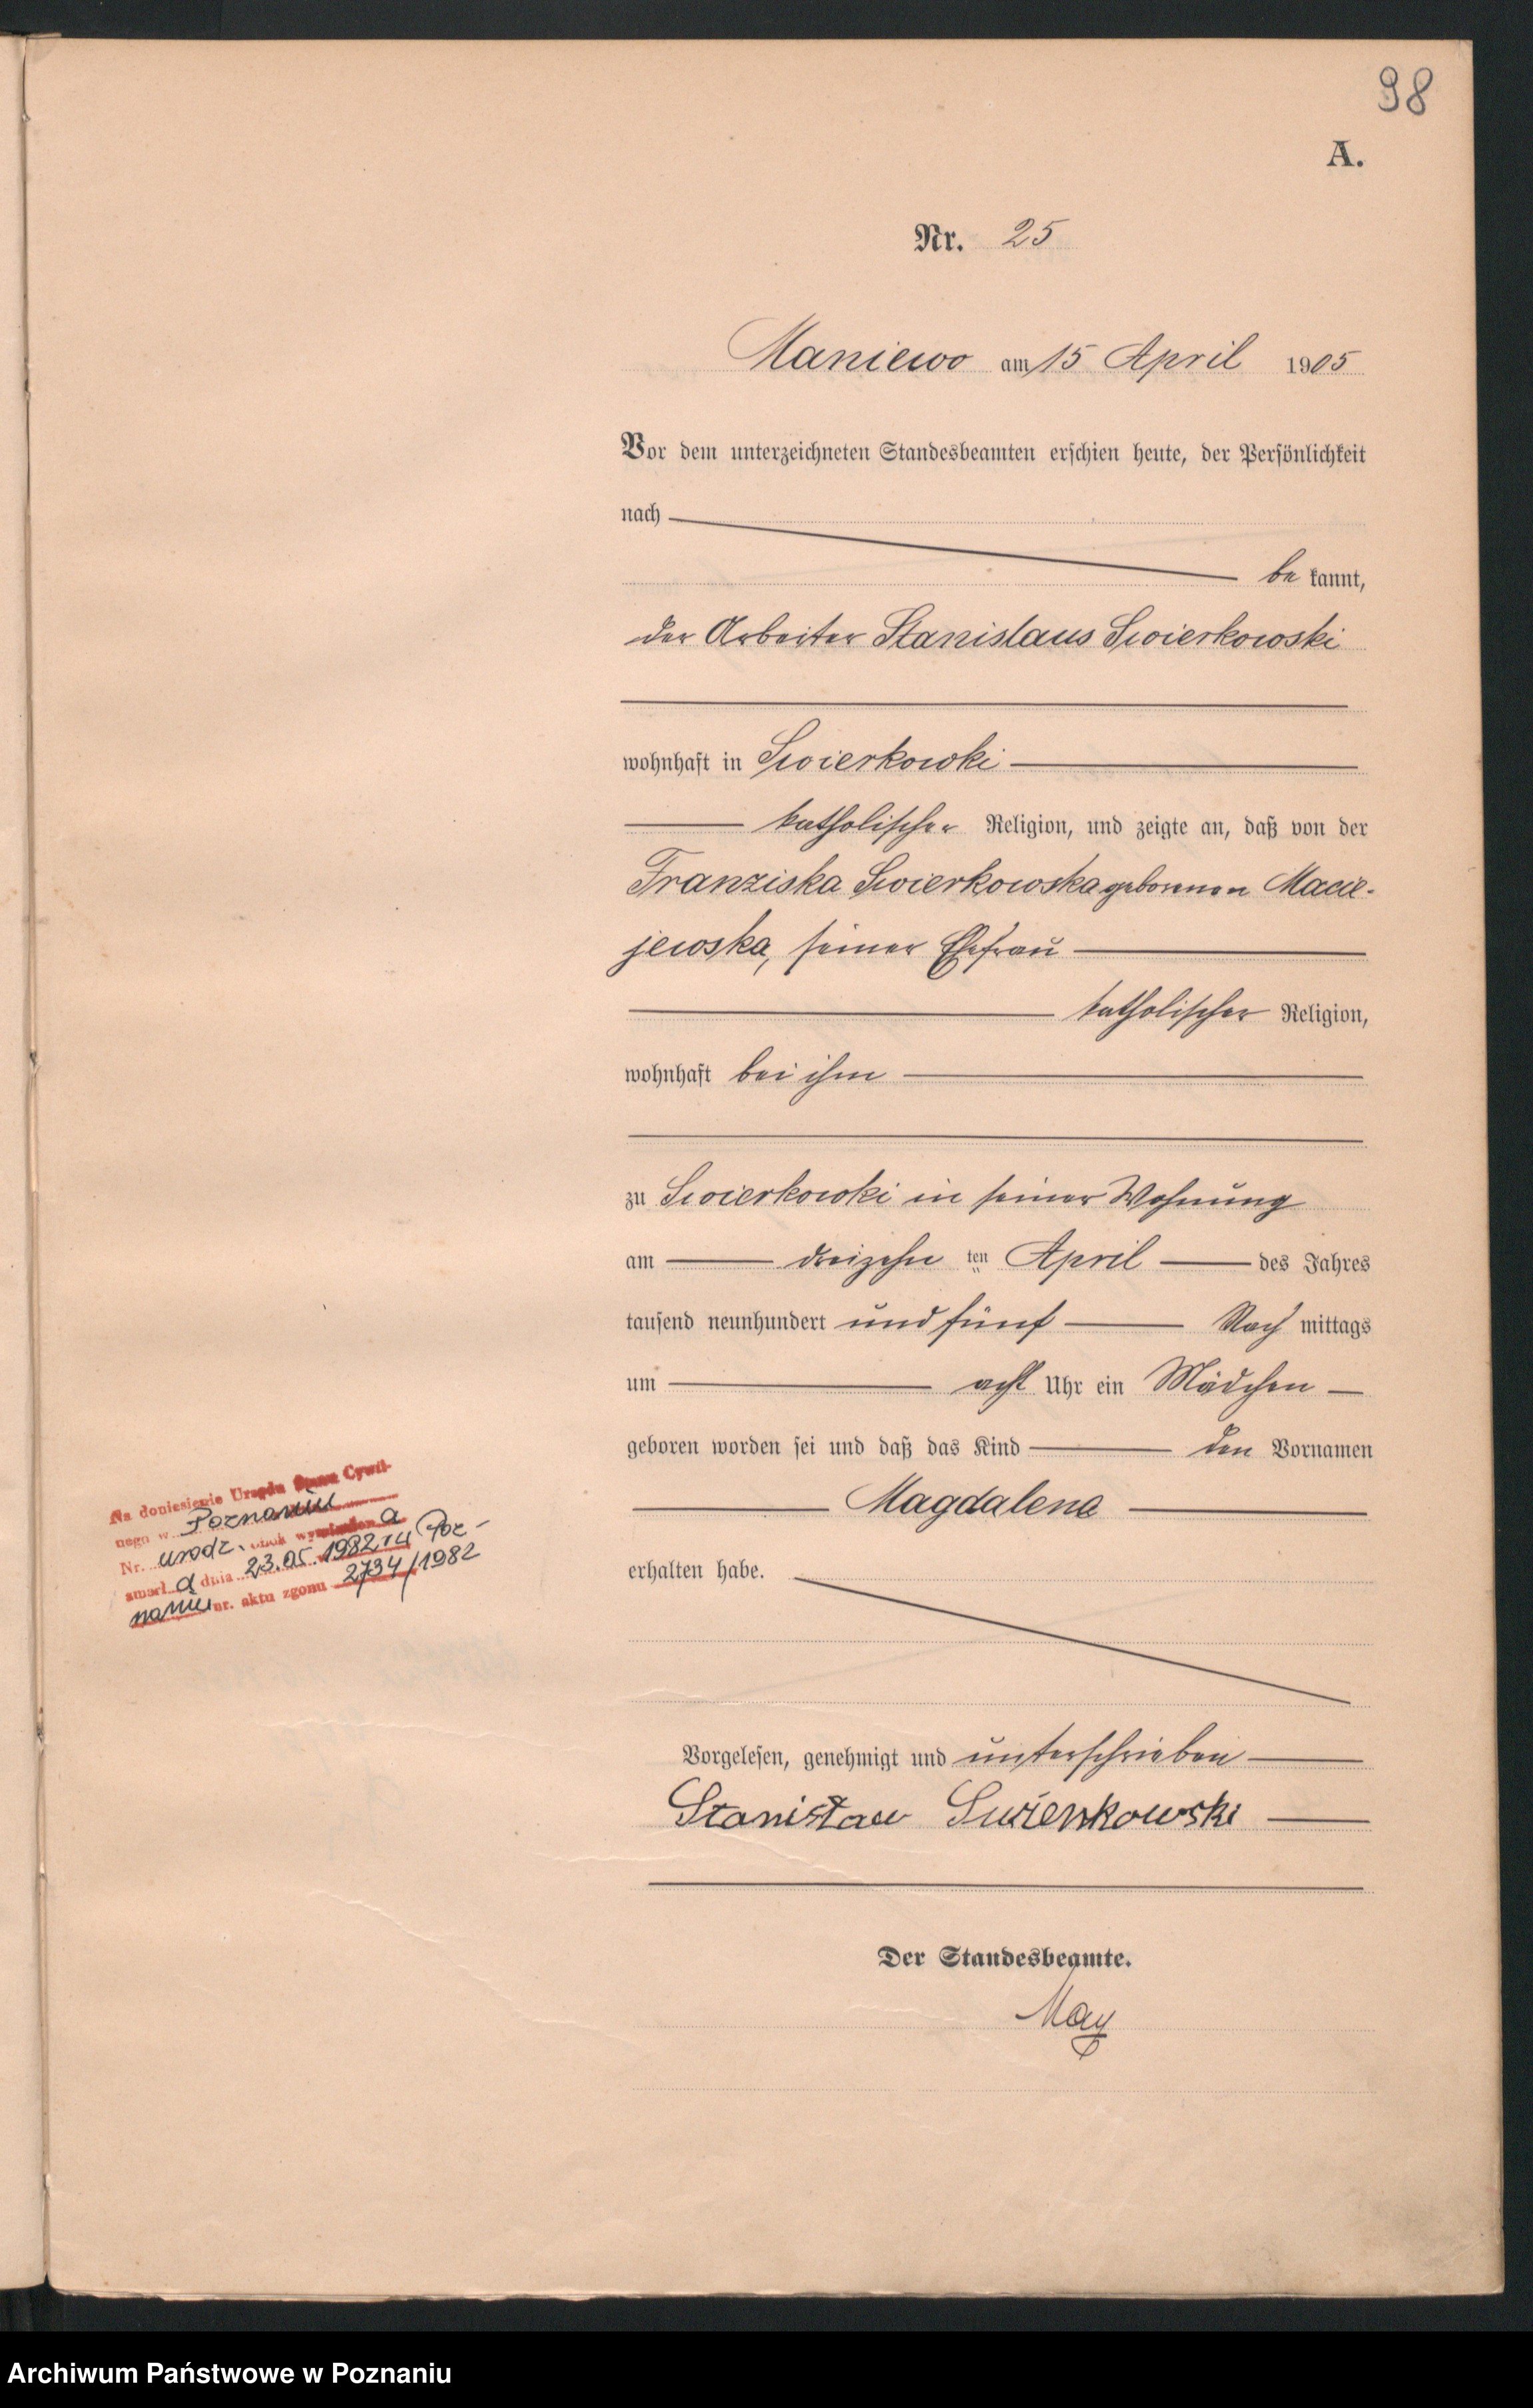 98
A.
Nr. 25
Maniewo am 15 April 1905
Vor dem unterzeichneten Standesbeamten erschien heute, der Persönlichkeit
nach
be kannt,
der Arbeiter Stanislaus Swierkowski
wohnhaft in Swierkowki
katholischer Religion, und zeigte an, daß von der
Franziska Swierkowska geborenen Macie-
jewska, seiner Ehefrau
katholischer Religion,
wohnhaft bei ihm
zu Swierkowki in seiner Wohnung
am dreizehn ten April des Jahres
tausend neunhundert und fünf Nach mittags
um acht Uhr ein Mädchen
geboren worden sei und daß das Kind den Vornamen
Magdalena
erhalten habe.
Vorgelesen, genehmigt und unterschrieben
Stanisław Swierkowski
Der Standesbeamte.
May
Na doniesienie Urzędu Stanu Cywil-
nego w Poznaniu
Nr. urodz. obok wymienion a
zmarł a dnia 23.05.1982 r w Poz-
naniu nr. aktu zgonu 2734/1982
Archiwum Państwowe w Poznaniu